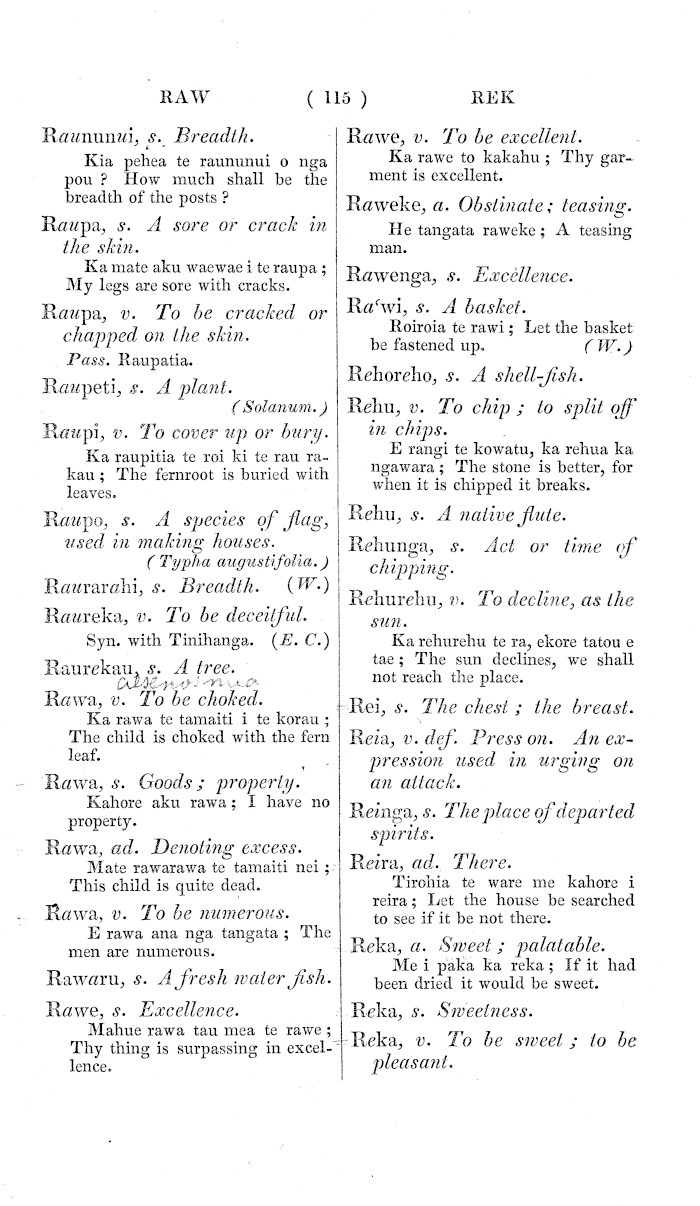 RAW ( 115 ) REK
Raununui, s. Breadth.
Kia pehea te raununui o nga
pou ? How much shall be the
breadth of the posts ?
Raupa, s. A sore or crack in
the skin.
Ka mate aku waewae i te raupa ;
My legs are sore with cracks.
Raupa, v. To be cracked or
chapped on the skin.
Pass. Raupatia.
Raupeti, s. A plant.
(Solanum.)
Raupi, v. To cover up or bury.
Ka raupitia te roi ki te rau ra-
kau ; The fernroot is buried with
leaves.
Raupo, s. A species of flag,
used in making houses.
(Typha augustifolia.)
Raurarahi, s. Breadth. (W.)
Raureka, v. To be deceitful.
Syn. with Tinihanga. (E. C.)
Raurekau, s. A tree.
Rawa, v. To be choked.
Ka rawa te tamaiti i te korau ;
The child is choked with the fern
leaf.
Rawa, s. Goods ; property.
Kahore aku rawa ; I have no
property.
Rawa, ad. Denoting excess.
Mate rawarawa te tamaiti nei ;
This child is quite dead.
Rawa, v. To be numerous.
E rawa ana nga tangata ; The
men are numerous.
Rawaru, s. A fresh water fish.
Rawe, s. Excellence.
Mahue rawa tau mea te rawe ;
Thy thing is surpassing in excel-
lence.
Rawe, v. To be excellent.
Ka rawe to kakahu ; Thy gar-
ment is excellent.
Raweke, a. Obstinate ; teasing.
He tangata raweke ; A teasing
man.
Rawenga, s. Excellence.
Ra‘wi, s. A basket.
Roiroia te rawi ; Let the basket
be fastened up. (W.)
Rehoreho, s. A shell-fish.
Rehu, v. To chip ; to split off
in chips.
E rangi te kowatu, ka rehua ka
ngawara ; The stone is better, for
when it is chipped it breaks.
Rehu, s. A native flute.
Rehunga, s. Act or time of
chipping.
Rehurehu, v. To decline, as the
sun.
Ka rehurehu te ra, ekore tatou e
tae ; The sun declines, we shall
not reach the place.
Rei, s. The chest ; the breast.
Reia, v. def. Press on. An ex-
pression used in urging on
an attack.
Reinga, s. The place of departed
spirits.
Reira, ad. There.
Tirohia te ware me kahore i
reira ; Let the house be searched
to see if it be not there.
Reka, a. Sweet ; palatable.
Me i paka ka reka ; If it had
been dried it would be sweet.
Reka, s. Sweetness.
Reka, v. To be sweet ; to be
pleasant.